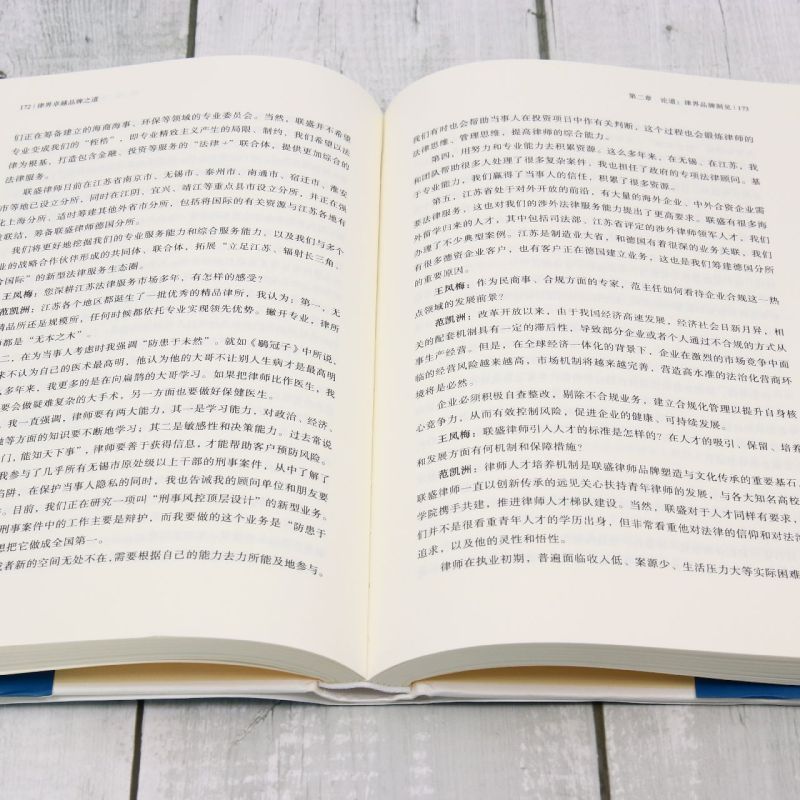 172 | 律界卓越品牌之道
们正在筹备建立的海商海事、环保等领域的专业委员会。当然，联盛并不希望
专业变成我们的“桎梏”，即专业精致主义产生的局限、制约，我们希望以法
律为根基，打造包含金融、投资等服务的“法律+”联合体，提供更加综合的
法律服务。
联盛律师目前在江苏省南京市、无锡市、泰州市、南通市、宿迁市、淮安
市等地已设立分所，同时在江阴、宜兴、靖江等重点县市设立分所，并正在强
化上海分所、适时筹建其他外省市分所，包括将国际的有关资源与江苏各地有
联结，筹备联盛律师德国分所。
我们将更好地挖掘我们的专业服务能力和综合服务能力，以及我们与多个
业的战略合作伙伴形成的共同体、联合体，拓展“立足江苏、辐射长三角、
合国际”的新型法律服务生态圈。
王凤梅：您深耕江苏法律服务市场多年，有怎样的感受？
范凯洲：江苏各个地区都诞生了一批优秀的精品律所，我认为：第一，无
精品所还是规模所，任何时候都依托专业实现领先优势。撇开专业，律所
都是“无本之木”。
二，在为当事人考虑时我强调“防患于未然”。就如《鹖冠子》中所说，
来不认为自己的医术最高明，他认为他的大哥不让别人生病才是最高明
么多年来，我更多的是在向扁鹊的大哥学习。如果把律师比作医生，我
要会做疑难复杂的大手术，另一方面也要做好保健医生。
，我一直强调，律师要有两大能力，其一是学习能力，对政治、经济、
融等方面的知识要不断地学习；其二是敏感性和决策能力。过去常说
门，能知天下事”，律师要善于获得信息，才能帮助客户预防风险。
我参与了几乎所有无锡市原处级以上干部的刑事案件，从中了解了
陷阱，在保护当事人隐私的同时，我也告诫我的顾问单位和朋友要
。目前，我们正在研究一项叫“刑事风控顶层设计”的新型业务。
刑事案件中的工作主要是辩护，而我要做的这个业务是“防患于
想把它做成全国第一。
或者新的空间无处不在，需要根据自己的能力去力所能及地参与。
第二章 论道：律界品牌洞见 | 173
我们有时也会帮助当事人在投资项目中作有关判断，这个过程也会锻炼律师的
法律思维、管理思维，提高律师的综合能力。
第四，用努力和专业能力去积累资源。这么多年来，在无锡、在江苏，我
和团队帮助很多人处理了很多复杂案件，我也担任了政府的专项法律顾问。基
于专业能力，我们赢得了当事人的信任，积累了很多资源。
第五，江苏省处于对外开放的前沿，有大量的海外企业、中外合资企业需
要法律服务，这也对我们的涉外法律服务能力提出了更高要求。联盛有很多海
外留学归来的人才，其中包括司法部、江苏省评定的涉外律师领军人才，我们
办理了不少典型案例。江苏是制造业大省，和德国有着很深的业务关联，我们
有很多德资企业客户，也有客户正在德国建立业务，这也是我们筹建德国分所
的重要原因。
王凤梅：作为民商事、合规方面的专家，范主任如何看待企业合规这一热
点领域的发展前景？
范凯洲：改革开放以来，由于我国经济高速发展，经济社会日新月异，相
关的配套机制具有一定的滞后性，导致部分企业或者个人通过不合规的方式从
事生产经营。但是，在全球经济一体化的背景下，企业在激烈的市场竞争中面
临的经营风险越来越高，市场机制将越来越完善，营造高水准的法治化营商环
境将是必然。
企业必须积极自查整改，剔除不合规业务，建立合规化管理以提升自身核
心竞争力，从而有效控制风险，促进企业的健康、可持续发展。
王凤梅：联盛律师引入人才的标准是怎样的？在人才的吸引、保留、培养
和发展方面有何机制和保障措施？
范凯洲：律师人才培养机制是联盛律师品牌塑造与文化传承的重要基石。
联盛律师一直以创新传承的远见关心扶持青年律师的发展，与各大知名高校
学院携手共建，推进律师人才梯队建设。当然，联盛对于人才同样有要求，
们并不是很看重青年人才的学历出身，但非常看重他对法律的信仰和对法治
追求，以及他的灵性和悟性。
律师在执业初期，普遍面临收入低、案源少、生活压力大等实际困难